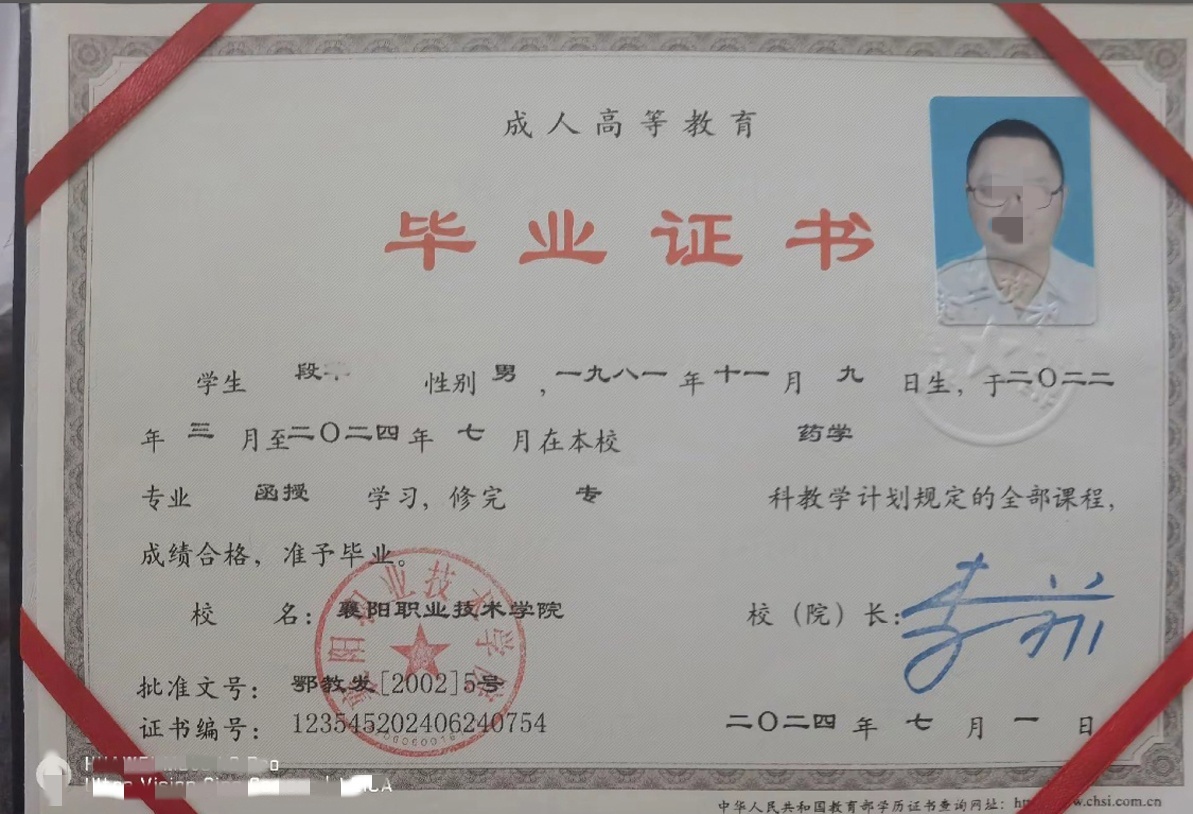 成人高等教育
毕业证书
学生 段 性别 男 ,一九八一 年 十一 月 九 日生, 于二〇二二
年 三 月至二〇二四 年 七 月在本校 药学
专业 函授 学习, 修完 专 科教学计划规定的全部课程,
成绩合格, 准予毕业。
校 名: 襄阳职业技术学院 校 (院) 长:
批准文号: 鄂教发[2002]5号
证书编号: 123545202406240754 二〇二四 年 七 月 一 日
中华人民共和国教育部学历证书查询网址: w.chsi.com.cn